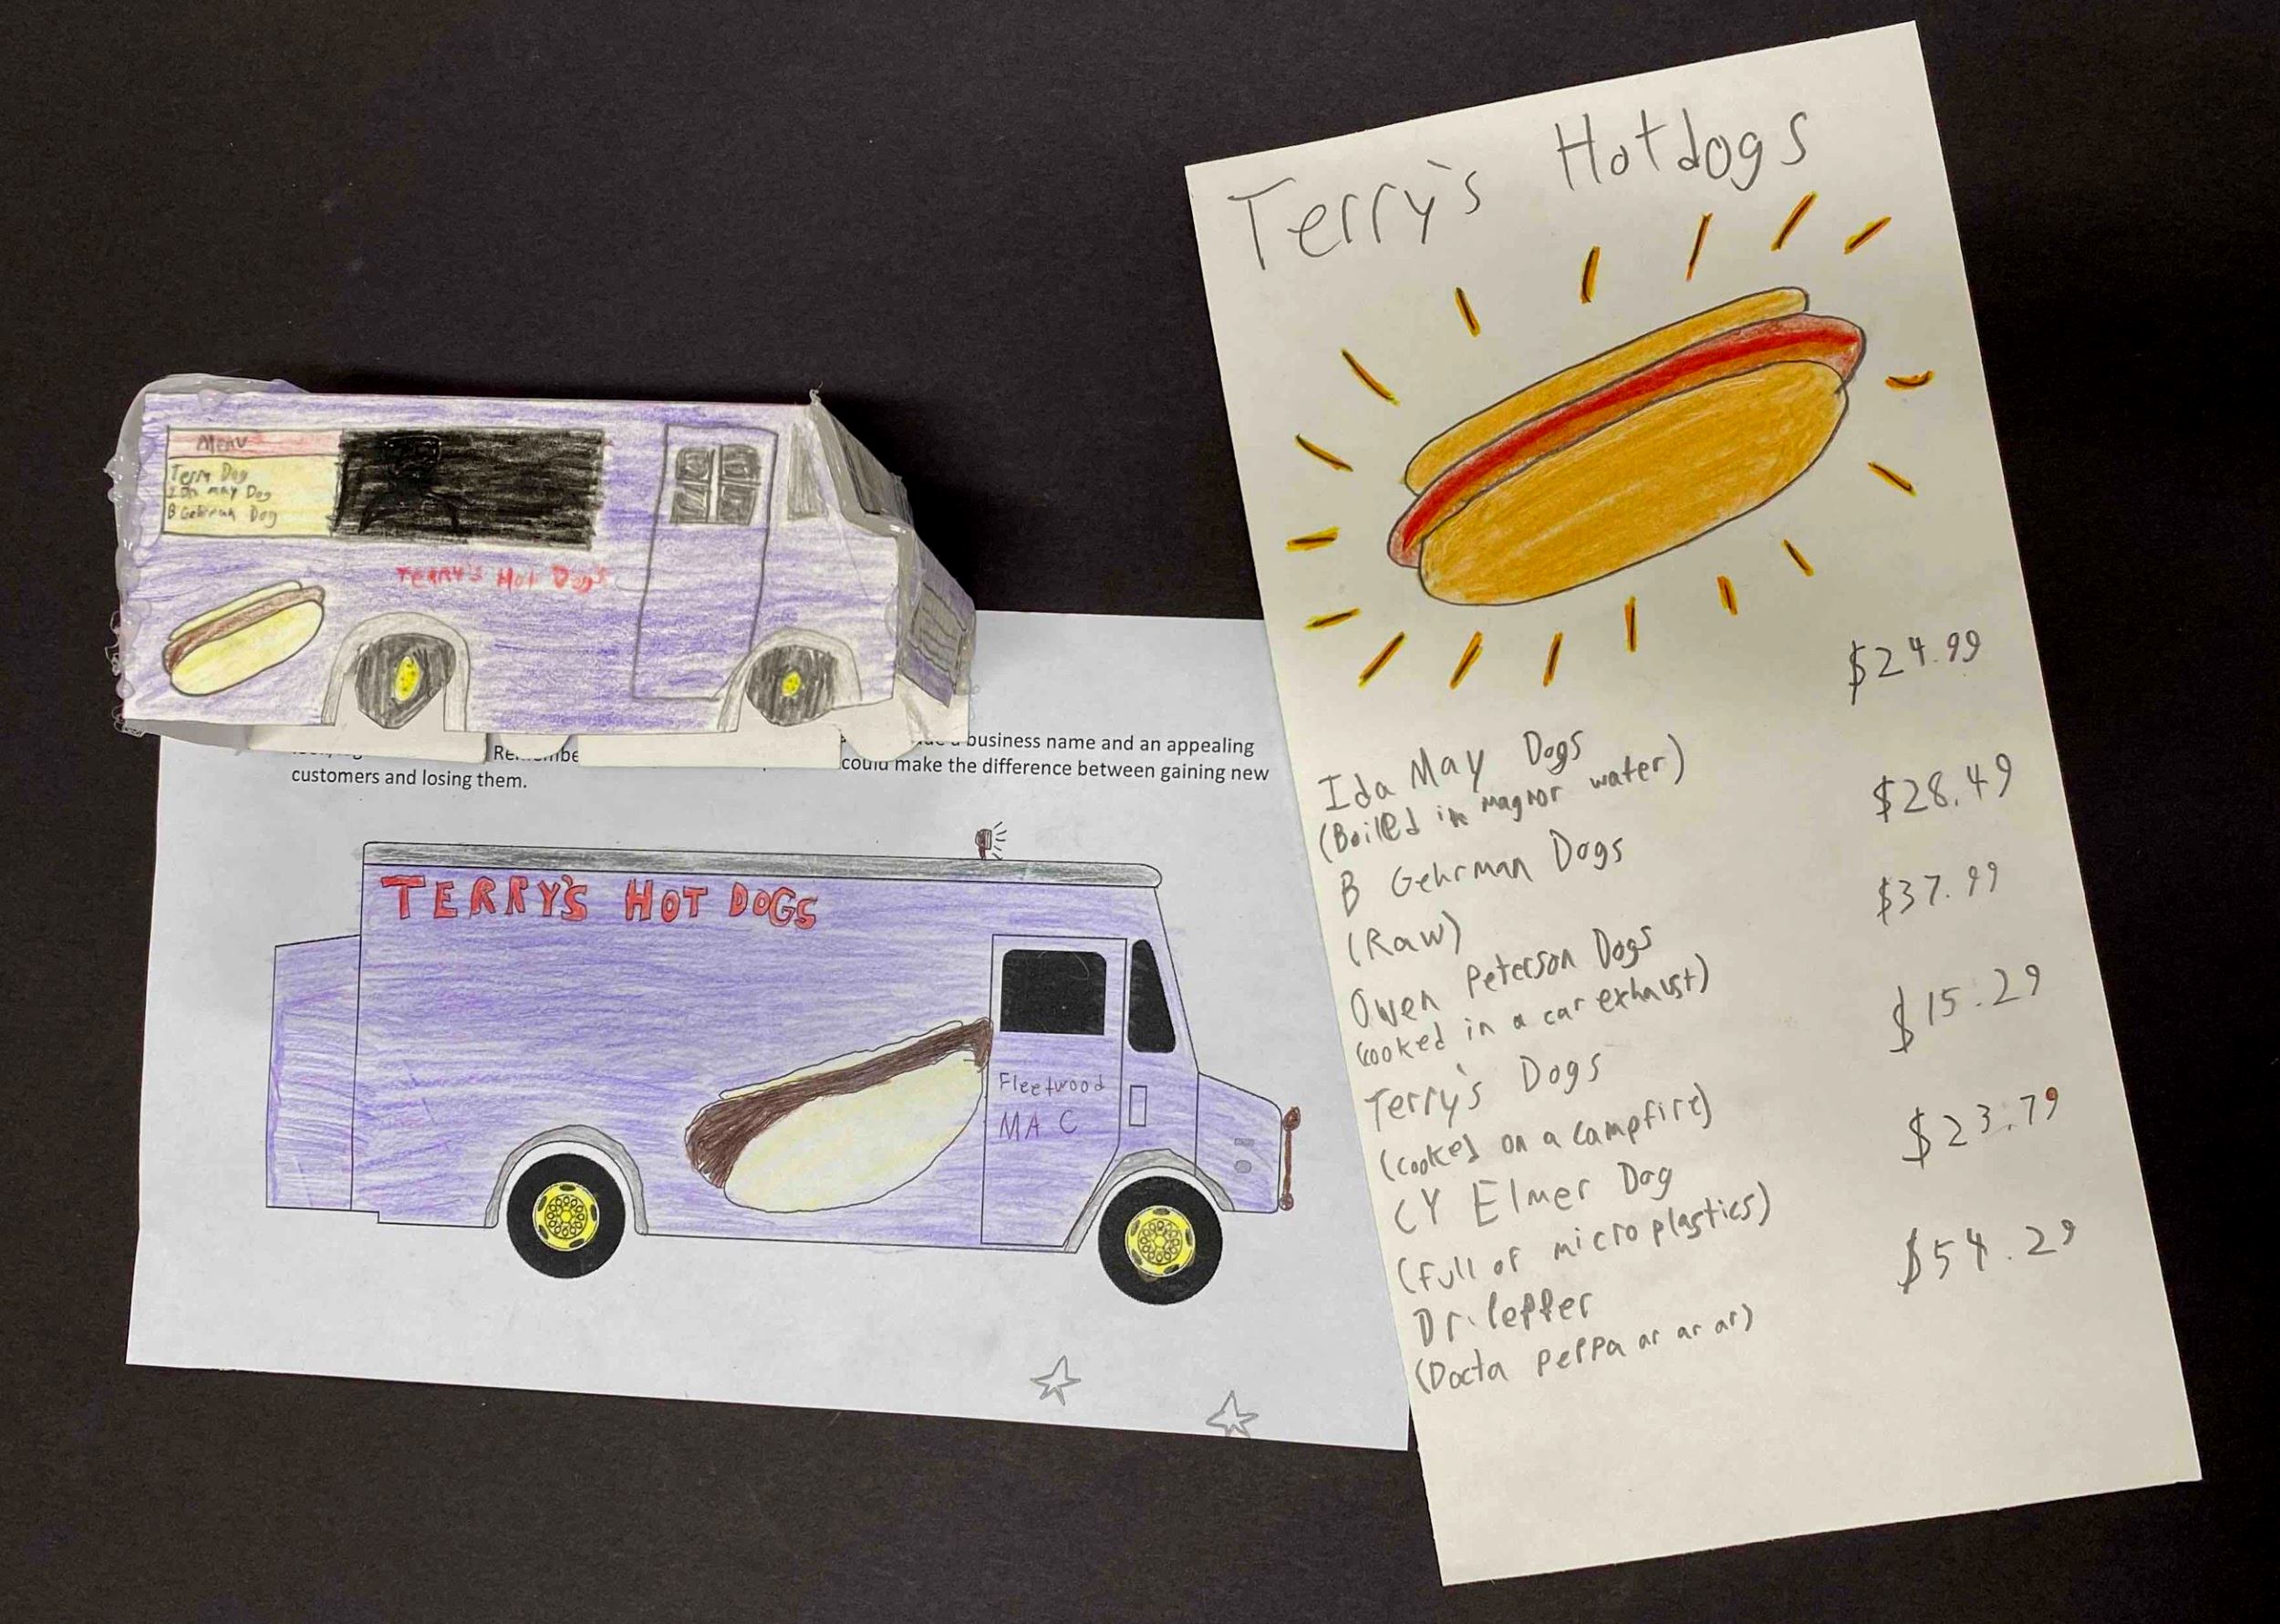 Menu
Terry Dog
Ida may Dog
B Gehrman Dog
Terry's Hot Dogs
business name and an appealing
could make the difference between gaining new
customers and losing them.
TERRY'S HOT DOGS
Fleetwood
MAC
Terry's Hotdogs
Ida May Dogs $24.99
(Boiled in magnor water)
B Gehrman Dogs $28.49
(Raw)
Owen Peterson Dogs $37.99
(cooked in a car exhaust)
Terry's Dogs $15.29
(cooked on a campfire)
CY Elmer Dog $23.79
(full of micro plastics)
Dr. pepper $54.29
(Docta peppa ar ar ar)